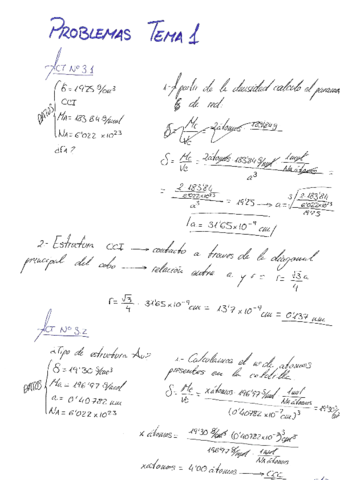 PROBLEMAS TEMA 1
ACT Nº 3.1
DATOS
δ = 19'25 g/cm³
CCI
Ma = 183'84 g/mol
NA = 6'022 x 10²³
1- A partir de la densidad calculo el parámetro
de red.
δ = Mc/Vc = 2 átomos 183'84
δ = Mc/Vc = 2 átomos · 183'84 g/mol · 1 mol/NA átomos / a³ =
= 2 · 183'84 / 6'022x10²³ / a³ = 19'25 → a = ∛(2 · 183'84 / 6'022x10²³ / 19'25)
a = 31'65 x 10⁻⁹ cm
2- Estructura CCI → contacto a través de la diagonal
principal del cubo → relación entre a y r = r = √3 a/4
r = √3/4 · 31'65 x 10⁻⁹ cm = 13'7 x 10⁻⁹ cm = 0'137 nm
ACT Nº 3.2
¿Tipo de estructura Au?
DATOS
δ = 19'30 g/cm³
Ma = 196'97 g/mol
a = 0'40782 nm
NA = 6'022 x 10²³
1- Calculamos el nº de átomos
presentes en la celdilla
δ = Mc/Vc = x átomos · 196'97 g/mol · 1 mol/NA átomos / (0'40782 x 10⁻⁷ cm)³ = 19'30
x átomos = 19'30 g/cm³ (0'40782 x 10⁻⁷)³ / 196'97 g/mol · 1 mol/NA átomos
x átomos = 4'00 átomos → CCC